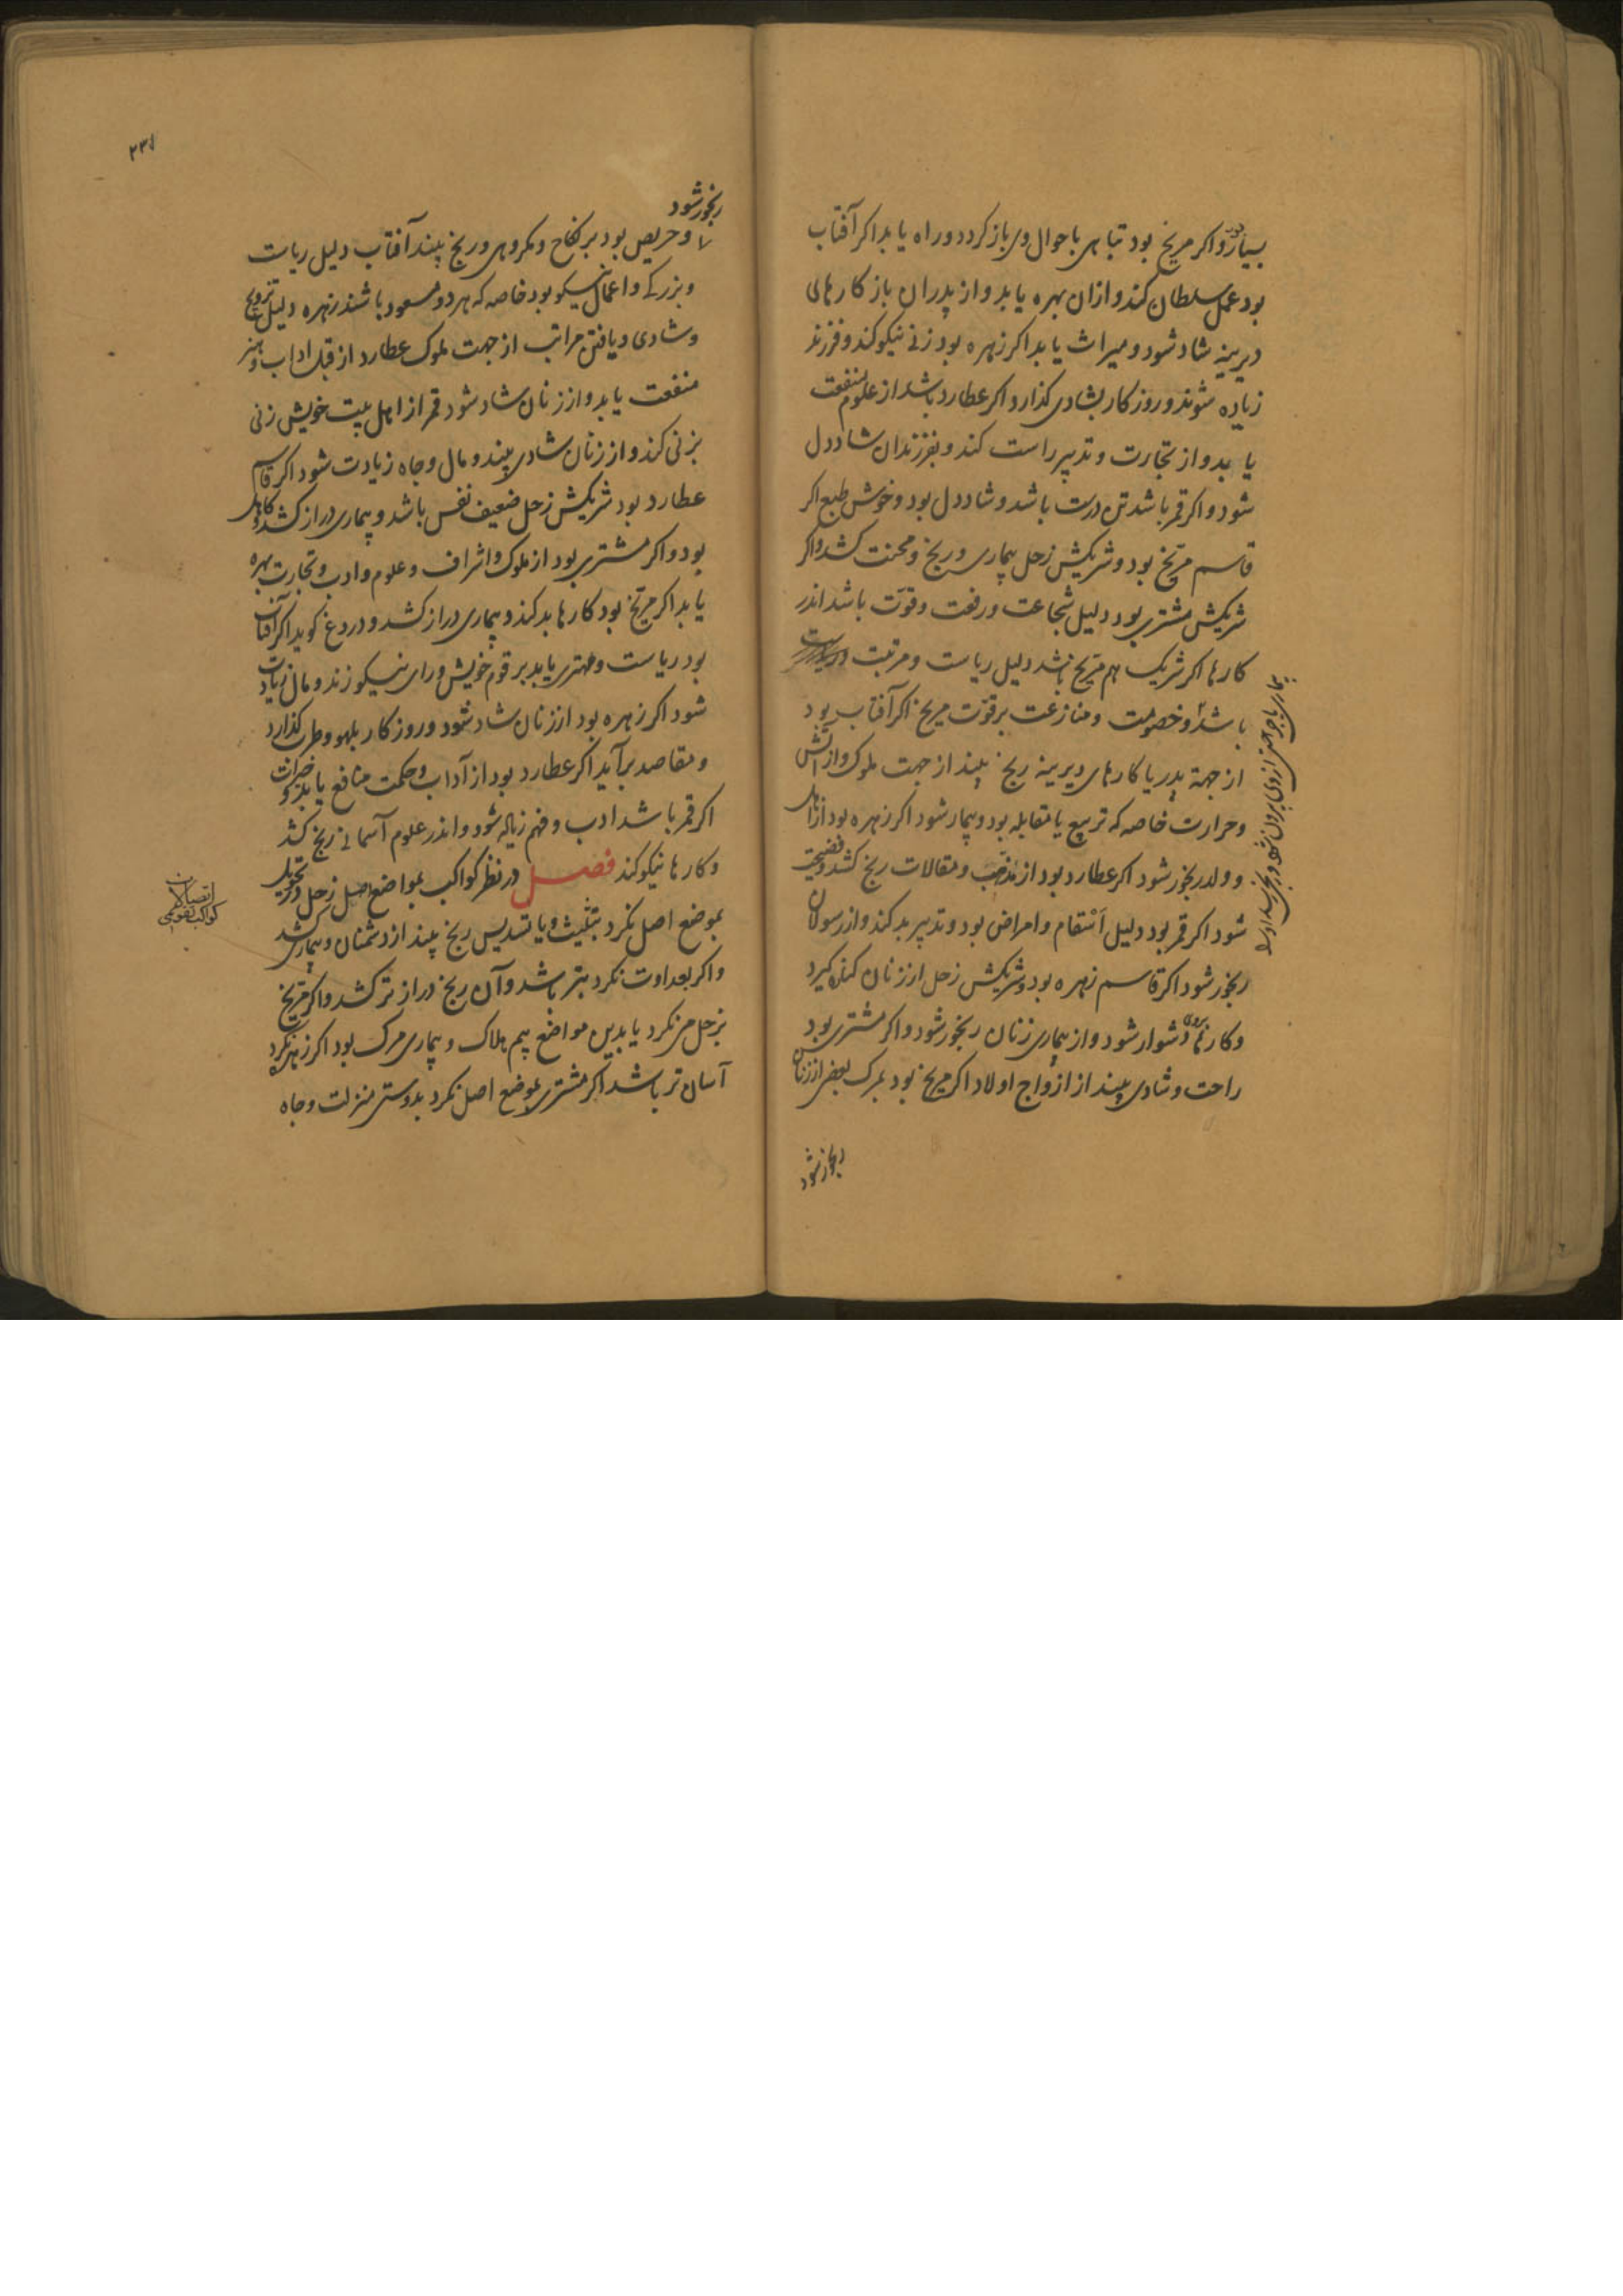 بسیار رود و اکر مریخ بود تباهی باحوال وی باز کردد و راه یابد اکر آفتاب
بود عمل سلطان کند و ازان بهره یابد و از پدران باز کارهای
دیرینه شاد شود و میراث یابد اکر زهره بود زنی نیکو کند و فرزند
زیاده شوند و روزکار بشادی کذارد اکر عطارد باشد از علوم منفعت
یابد و از تجارت و تدبیر راست کند و بفرزندان شاد دل
شود و اکر قمر باشد تن درست باشد و شاد دل بود و خوش طبع اکر
قاسم مریخ بود و شریکش زحل بیماری و رنج و محنت کشد و اکر
شریکش مشتری بود دلیل شجاعت و رفعت و قوت باشد اندر
کارها اکر شریک هم مریخ باشد دلیل ریاست و مرتبت
باشد و خصومت و منازعت بر قوت مریخ اکر آفتاب بود
از جهة پدر یا کارهای دیرینه رنج بیند از جهت ملوک و از آتش
و حرارت خاصه که تربیع یا مقابله بود و بیمار شود اکر زهره بود از اهل
و ولد رنجور شود اکر عطارد بود از مذهب و مقالات رنج کشد و فضیحت
شود اکر قمر بود دلیل اسقام و امراض بود و تدبیر بد کند و از رسولان
رنجور شود اکر قاسم زهره بود و شریکش زحل از زنان کناره کیرد
و کارها بروی دشوار شود و از بیماری زنان رنجور شود و اکر مشتری بود
راحت و شادی بیند از ازواج اولاد اکر مریخ بود بمرک بعضی از زنان
رنجور شود
۲۳۱
رنجور شود
و حریص بود بر نکاح و مکروهی و رنج بیند آفتاب دلیل ریاست
و بزرکی و اعمال نیکو بود خاصه که هر دو مسعود باشند زهره دلیل تزویج
و شادی و یافتن مراتب از جهت ملوک عطارد از قبل اداب و هنر
منفعت یابد و از زنان شاد شود قمر از اهل بیت خویش زنی
بزنی کند و از زنان شادی بیند و مال و جاه زیادت شود اکر قاسم
عطارد بود شریکش زحل ضعیف نفس باشد و بیماری دراز کشد و کاهل
بود و اکر مشتری بود از ملوک و اشراف و علوم و ادب و تجارت بهره
یابد اکر مریخ بود کارها بد کند و بیماری دراز کشد و دروغ کوید اکر آفتاب
بود ریاست و مهتری یابد بر قوم خویش و رای نیکو زند و مال زیادت
شود اکر زهره بود از زنان شاد شود و روزکار بلهو و طرب کذارد
و مقاصد برآید اکر عطارد بود از آداب و حکمت منافع یابد و خیرات
اکر قمر باشد ادب و فهم زیاده شود و اندر علوم آسمانی رنج کشد
و کارها نیکو کند فصل در نظر کواکب بمواضع اصل زحل در تحویل
بموضع اصل نکرد بتثلیث و یا تسدیس رنج بیند از دشمنان و بیماری کشد
و اکر بعداوت نکرد بتر باشد و آن رنج دراز تر کشد و اکر مریخ
بزحل می نکرد یا بدین مواضع بیم هلاک و بیماری مرک بود اکر زهره نکرد
آسان تر باشد اکر مشتری بموضع اصل نکرد بدوستی منزلت و جاه
اتصالات
کواکب تقویمی